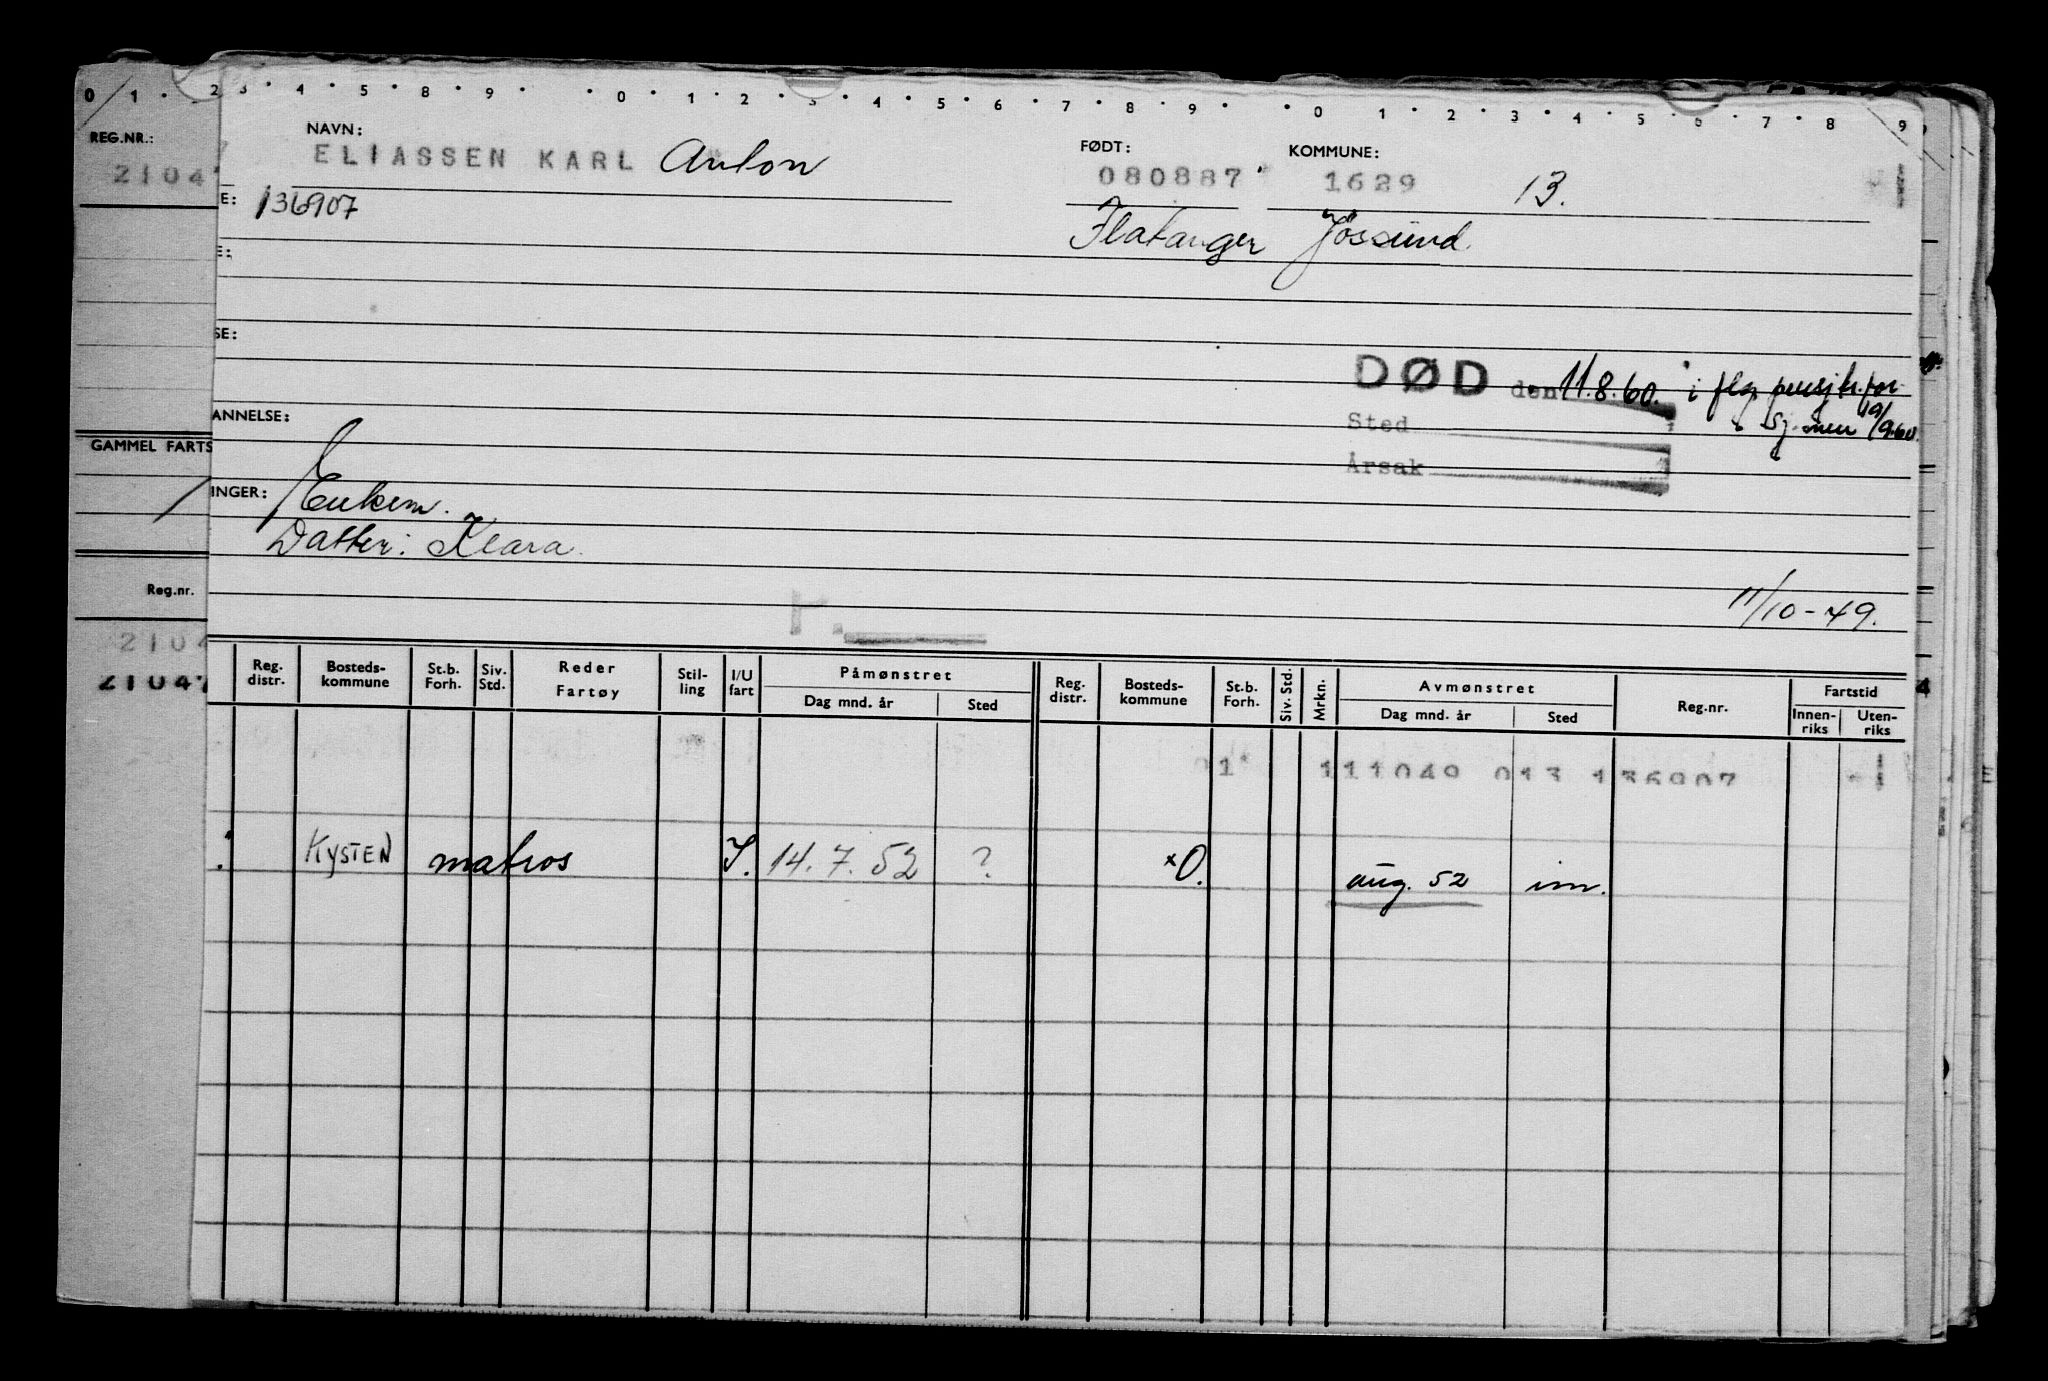 0 1 2 3 4 5 8 9 0 1 2 3 4 5 6 7 8 9 0 1 2 3 4 5 6 7 8 9
REG.NR.: NAVN: FØDT: KOMMUNE:
2104 ELIASSEN KARL Anton 080887 1629 13.
E: 136907 Flatanger Jössund.
E:
SE:
DØD den 11.8.60. i flg. pensj.tr. for
ANNELSE: Sted sj.menn 19/9.60.
GAMMEL FARTS Årsak
INGER: Enkem.
Datter: Klara.
Reg.nr. 11/10-49.
2104
21047
Reg. distr. Bosteds-kommune St.b. Forh. Siv. Std. Reder Fartøy Stil-ling I/U fart Påmønstret Dag mnd. år Sted Reg. distr. Bosteds-kommune St.b. Forh. Siv. Std. Mrkn. Avmønstret Dag mnd. år Sted Reg.nr. Fartstid Innen-riks Uten-riks
1 111049 013 136907
KYSTEN matros I. 14.7.52 ? x0. aug. 52 im.